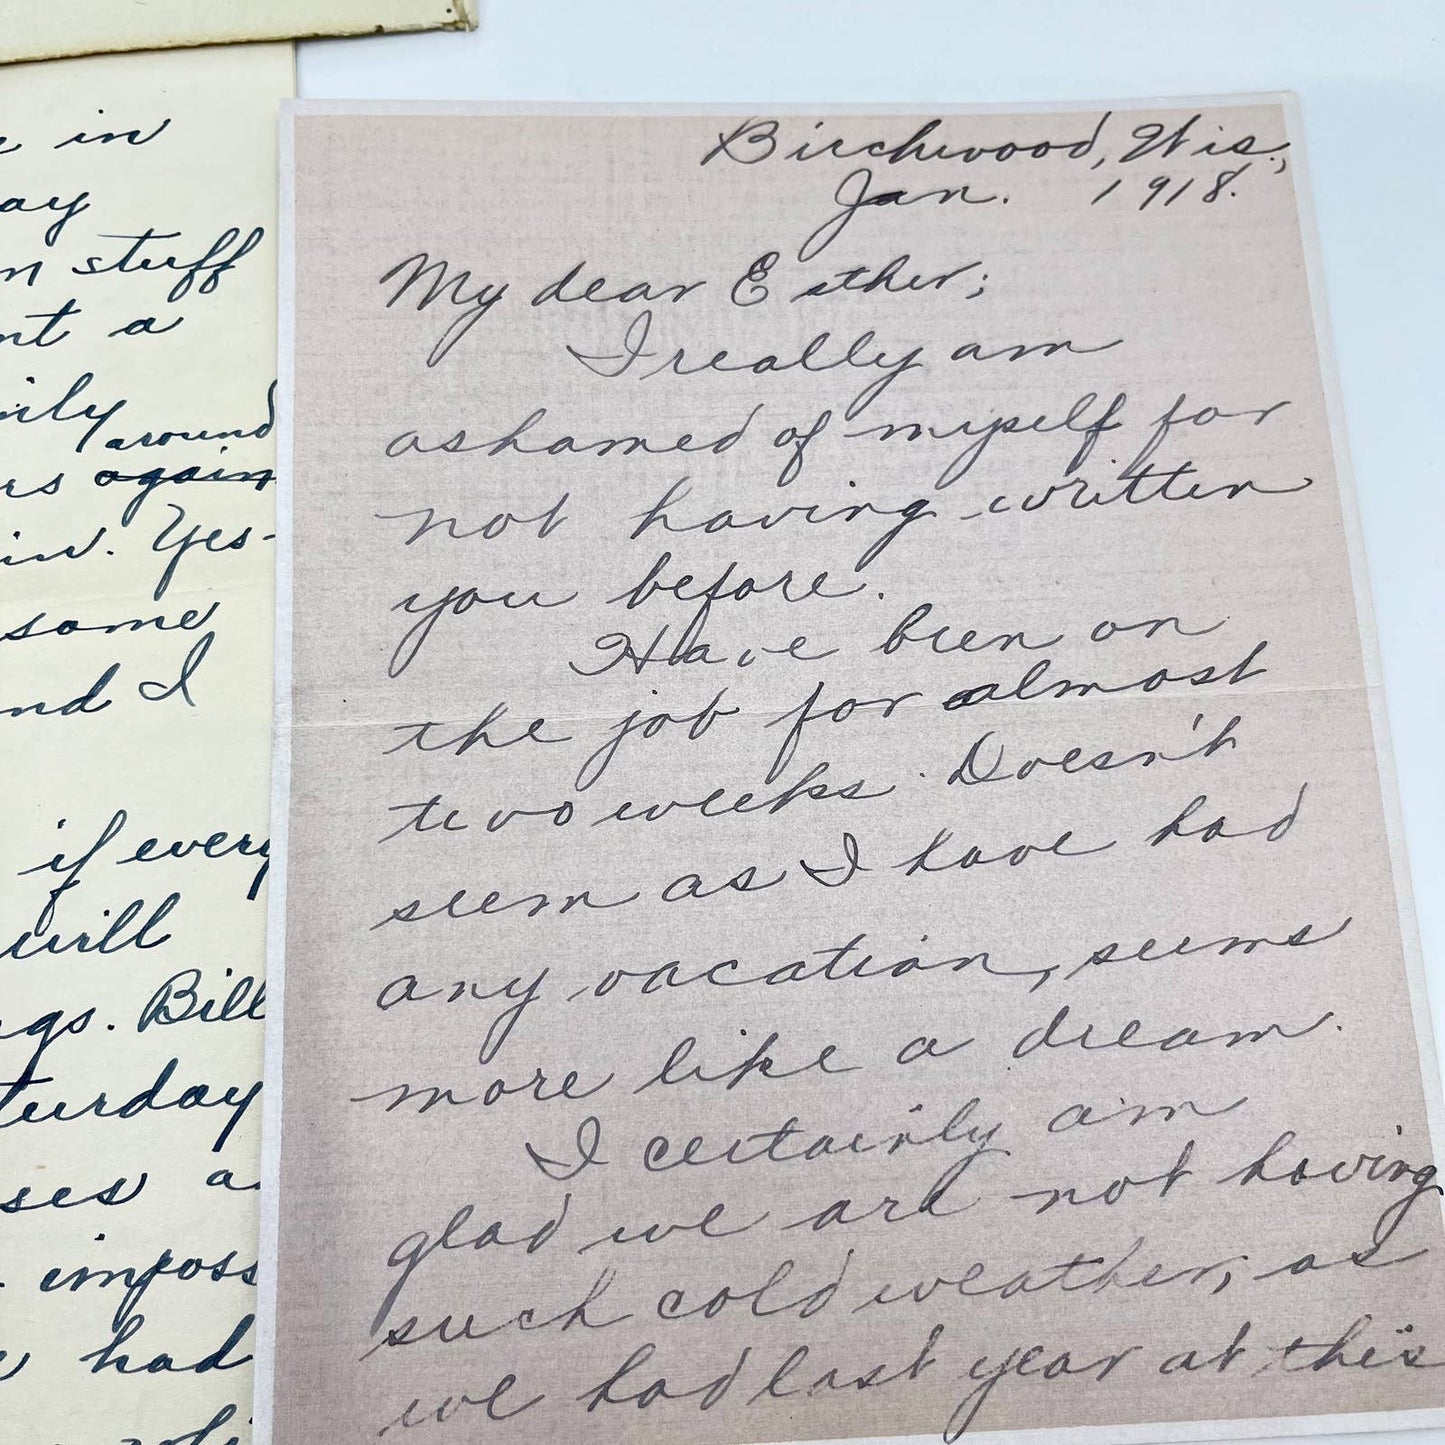 in
stuff
a
around
again
Yes-
some
I
if every
will
Bill
had
Birchwood, Wis.,
Jan. 1918.
My dear Esther;
I really am
ashamed of myself for
not having written
you before.
Have been on
the job for almost
two weeks. Doesn't
seem as I have had
any vacation, seems
more like a dream.
I certainly am
glad we are not having
such cold weather, as
we had last year at this